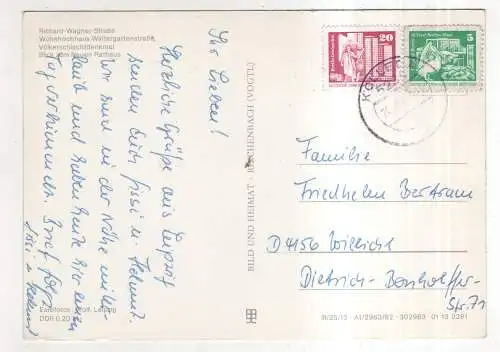 Richard-Wagner-Straße
Wohnhochhaus Wintergartenstraße
Völkerschlachtdenkmal
Blick zum Neuen Rathaus
Ihr Lieben!
Herzliche Grüße aus Leipzig
senden Euch Sissi u. Helmut.
Wir sind in der Nähe
und haben heute hier einen
Tag verbummelt. Brief folgt
Sissi u. Helmut
Farbfotos: Wolf, Leipzig
DDR 0,20 M
BILD UND HEIMAT · REICHENBACH (VOGTL)
20
5
Familie
Friedhelm Bertram
D 4156 Willich
Dietrich-Bonhoeffer-
Str. 71
III/25/13 A1/2963/82 302963 01 13 0391